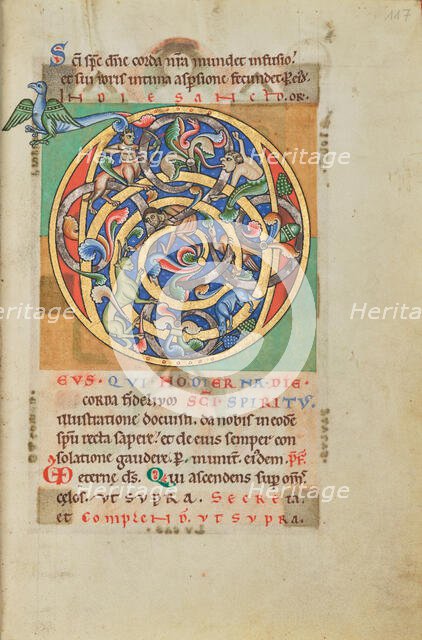 117
Sci spc dne corda nra mundet infusio.
et sui roris intima aspsione fecundet. P. eid
IN DIE SANCTO. OR.
EUS. QUI HODIERNA DIE
corda fidelium SCI SPIRITUS
illustratione docuisti. da nobis in eode
spu recta sapere. et de eius semper con
solatione gaudere. P. munt. eisdem PF.
eterne ds. Qui ascendens sup oms
celos. UT SUPRA. SECRETA
et COMPLEND. UT SUPRA.
Heritage
Heritage
Heritage
Heritage
Heritage
Heritage
Heritage
Heritage